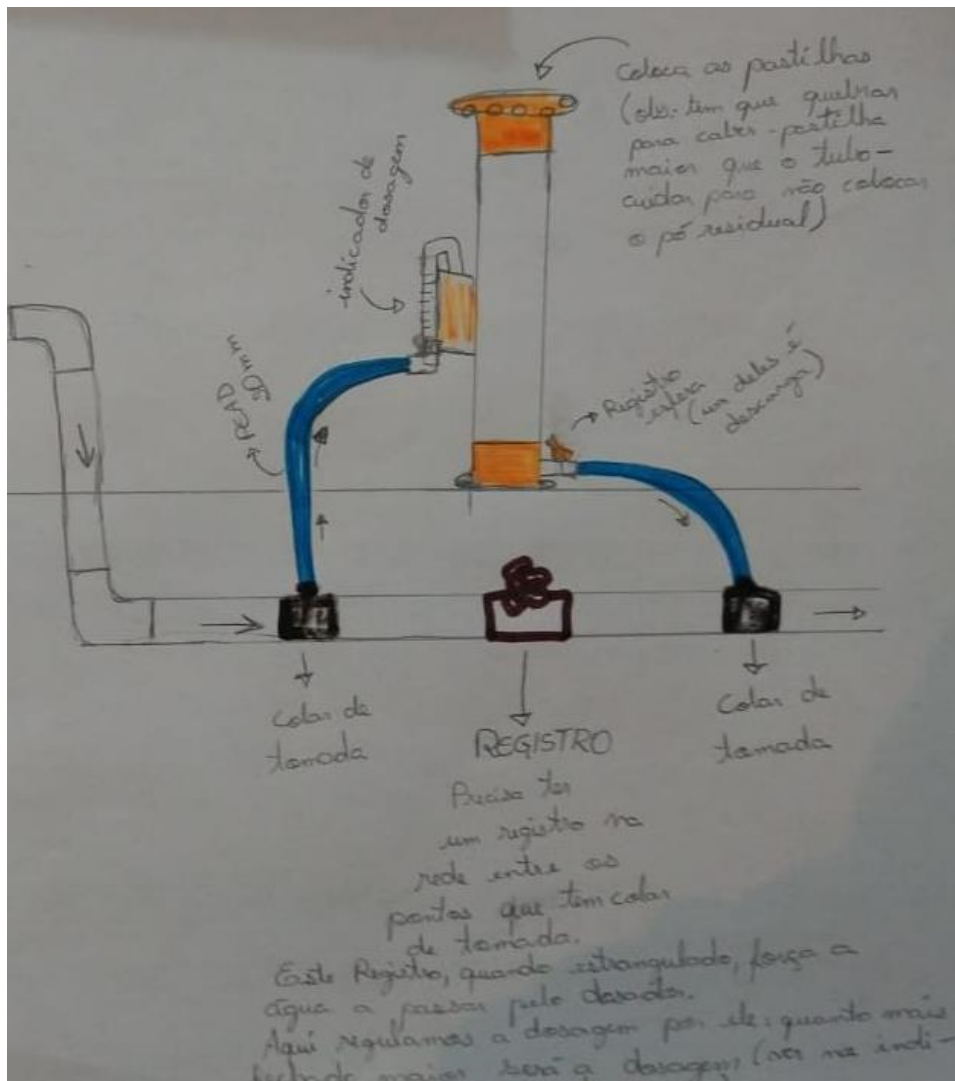 Coloca as pastilhas
(obs. tem que quebrar
para caber - pastilha
maior que o tubo -
cuidar para não colocar
o pó residual)
indicador de
dosagem
PEAD
Registro
esfera
(um deles é
descarga)
Colar de
tomada
REGISTRO
Colar de
tomada
Precisa ter
um registro na
rede entre os
pontos que tem colar
de tomada.
Este Registro, quando estrangulado, força a
água a passar pelo dosador.
Aqui regulamos a dosagem por ele: quanto mais
fechado maior será a dosagem (ver no indi-